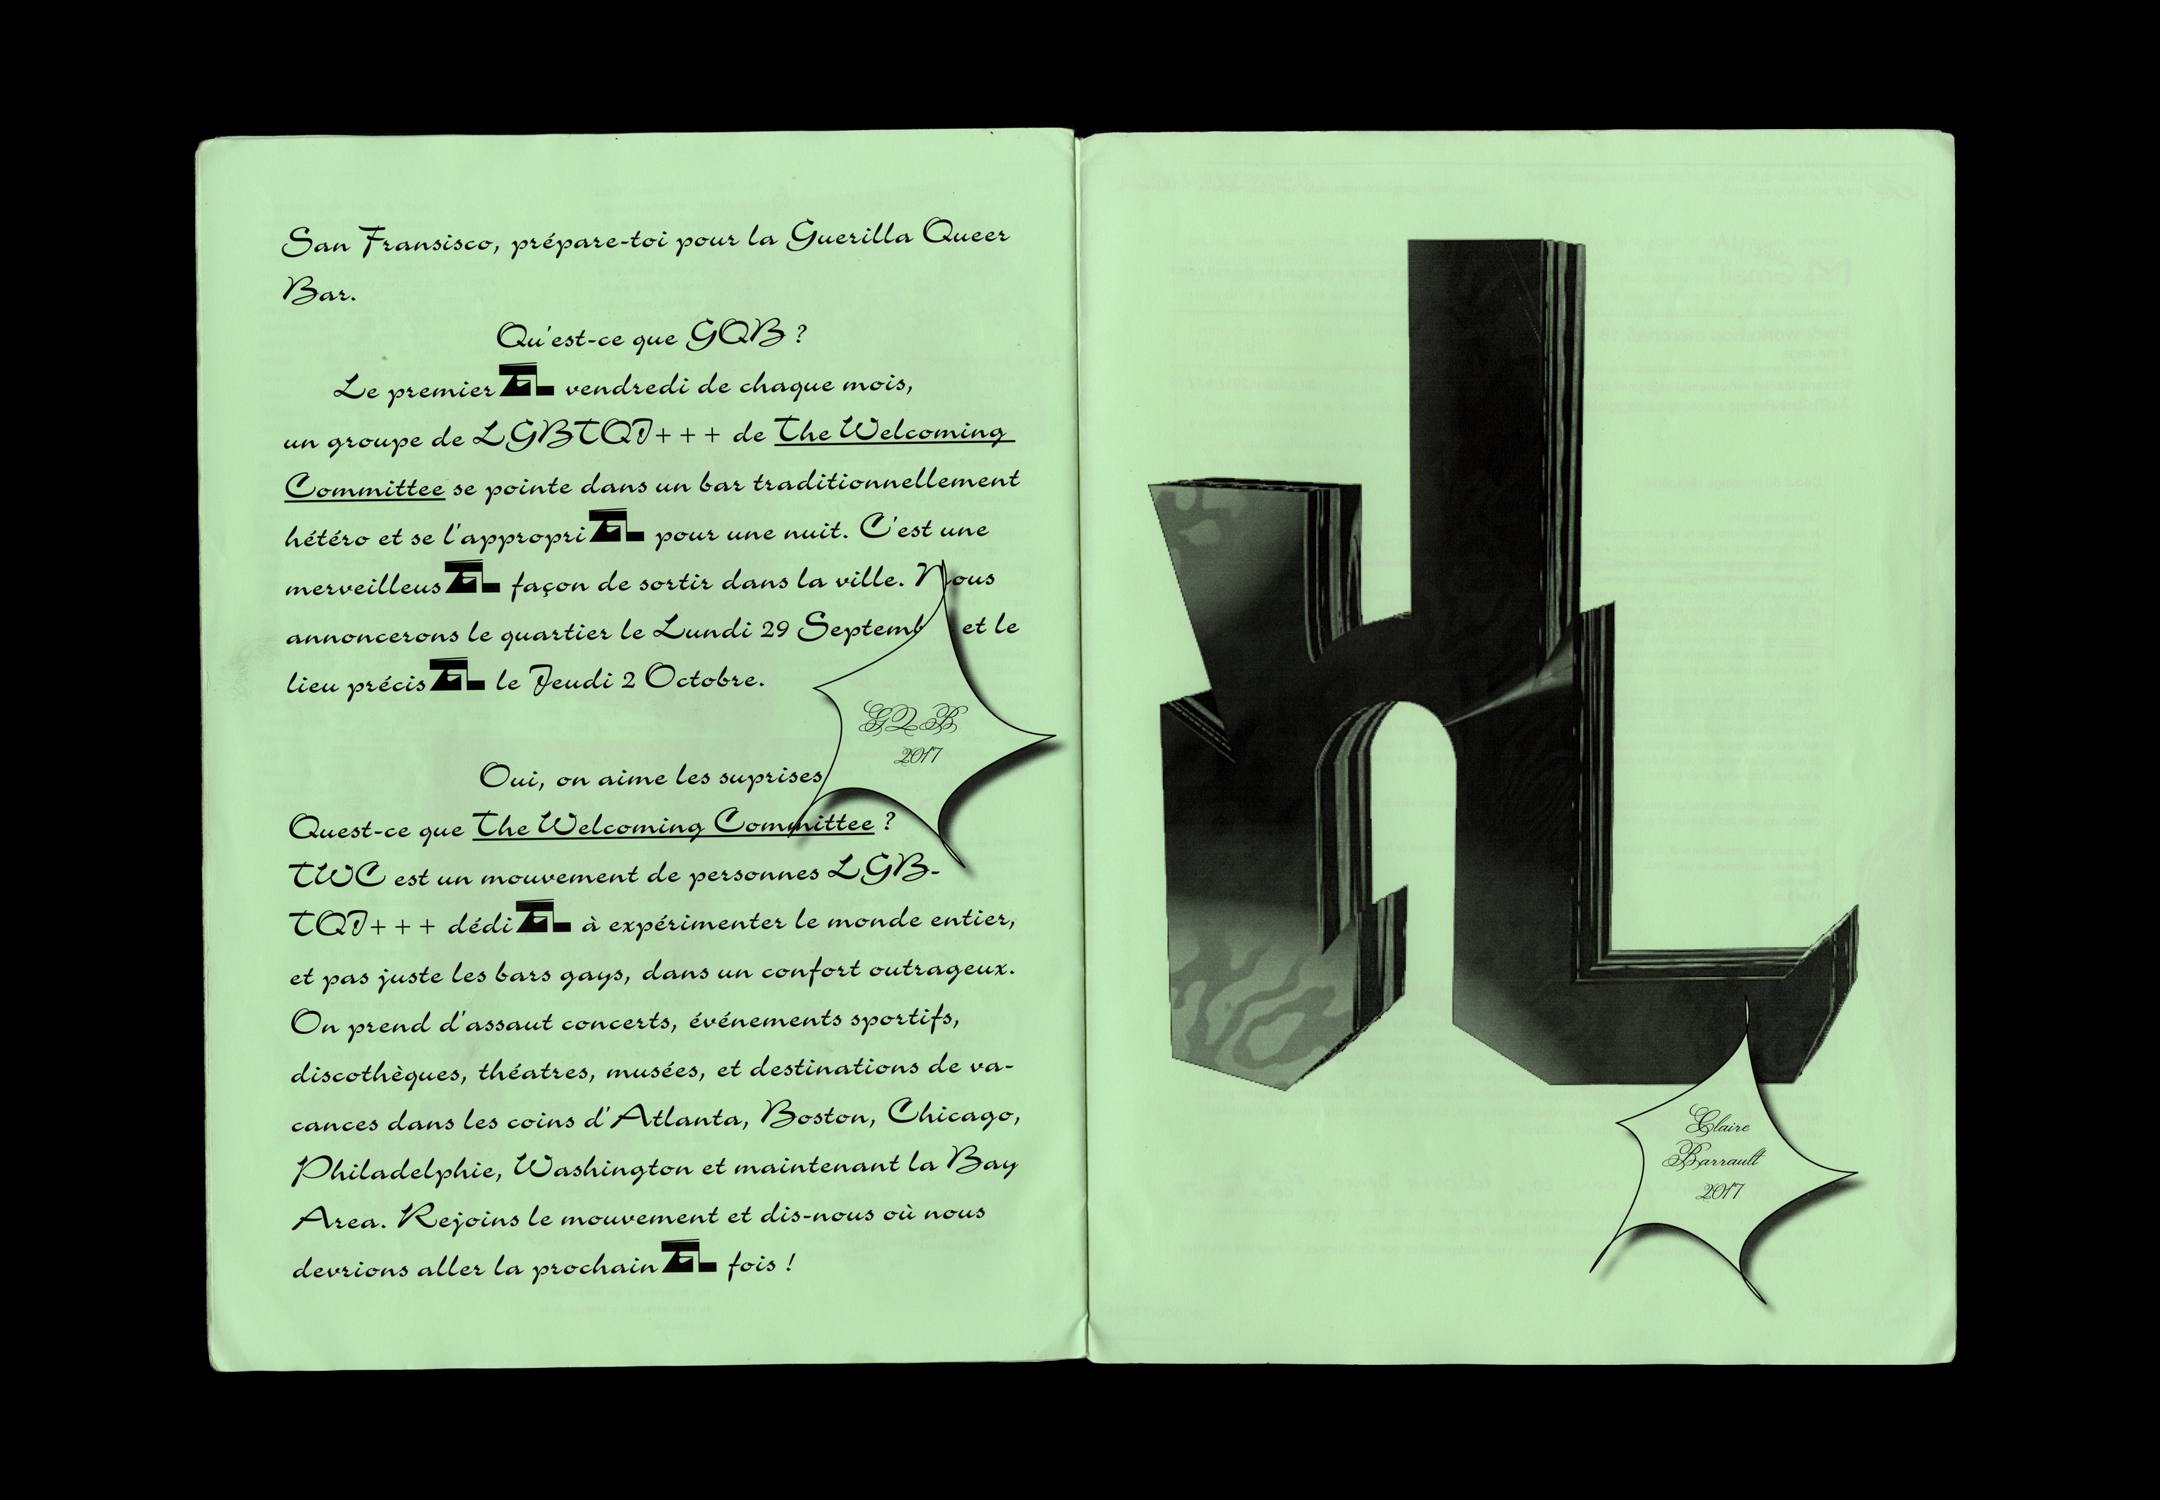 San Fransisco, prépare-toi pour la Guerilla Queer
Bar.
Qu'est-ce que GQB ?
Le premier vendredi de chaque mois,
un groupe de LGBTQI+++ de The Welcoming
Committee se pointe dans un bar traditionnellement
hétéro et se l'appropri pour une nuit. C'est une
merveilleus façon de sortir dans la ville. Nous
annoncerons le quartier le Lundi 29 Septemb et le
lieu précis le Jeudi 2 Octobre.
GQB
2017
Oui, on aime les suprises
Quest-ce que The Welcoming Committee ?
TWC est un mouvement de personnes LGB-
TQI+++ dédi à expérimenter le monde entier,
et pas juste les bars gays, dans un confort outrageux.
On prend d'assaut concerts, événements sportifs,
discothèques, théatres, musées, et destinations de va-
cances dans les coins d'Atlanta, Boston, Chicago,
Philadelphie, Washington et maintenant la Bay
Area. Rejoins le mouvement et dis-nous où nous
devrions aller la prochain fois !
Claire
Barrault
2017